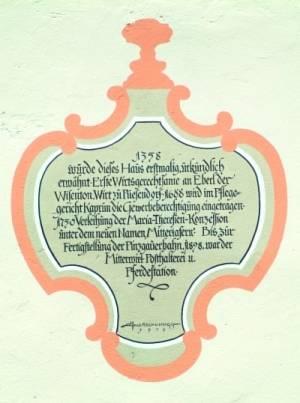 1358
würde dieses Haus erstmalig, ürkündlich
erwähnt-Erste Wirtsgerechtsame an Eberl der
Wisenton, Wirt zü Niesendorf. 1688 wird im Pflege-
gericht Kaprün die Gewerbeberechtigung eingetragen.
1750 Verleihung der Maria-Theresien-Konzession
ünter dem neuen Namen, Mitterwirt. Bis zür
Fertigstellung der Pinzgauerbahn, 1898, war der
Mitterwirt Posthalterei u.
Pferdestation.